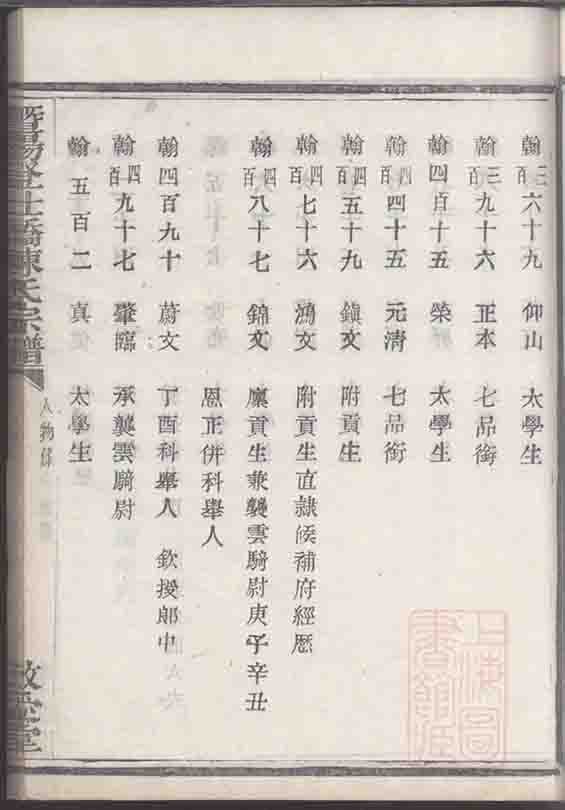 翰三百六十九 仰山 太學生
翰三百九十六 正本 七品銜
翰四百十五 榮 太學生
翰四百四十五 元清 七品銜
翰四百五十九 鎮文 附貢生
翰四百七十六 鴻文 附貢生直隷候補府經歷
翰四百八十七 錦文 廩貢生兼襲雲騎尉庚子辛丑
恩正併科舉人
翰四百九十 蔚文 丁酉科舉人 欽授郎中
翰四百九十七 肇臨 承襲雲騎尉
翰五百二 真 太學生
暨陽 仕 陳氏宗譜
人物
堂
上海圖書館藏